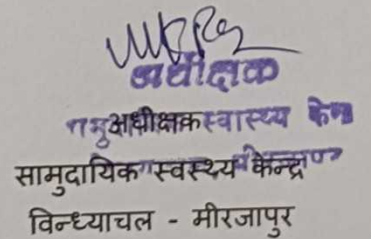 अधीक्षक
अधीक्षक स्वास्थ्य केन्द्र
सामुदायिक स्वस्थ्य केन्द्र
विन्ध्याचल - मीरजापुर